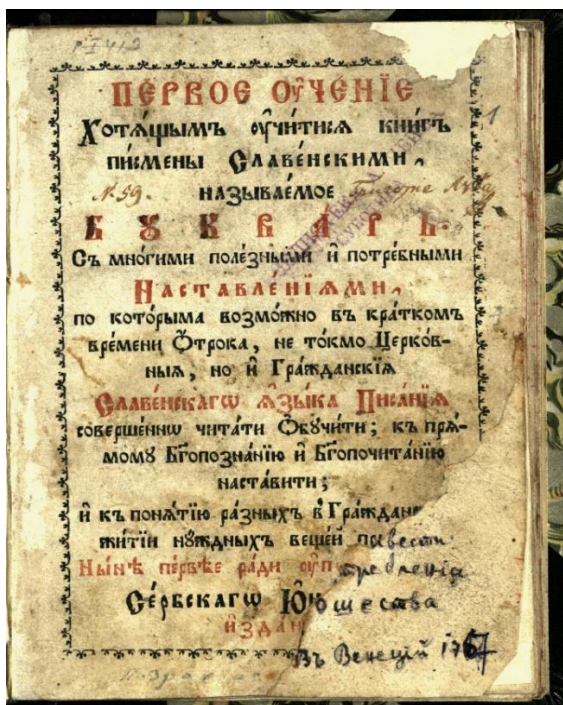 Р I 412
1
ПЕ́РВОЕ ОУ҆ЧЕ́НЇЕ
Хотѧ́щымъ ᲂу҆чи́тисѧ кни́гъ
пи́смены Славе́нскими,
N. 59.
называ́емое
БУКВА́РЬ.
Съ мно́гими поле́зными и҆ потре́бными
Наставле́нїѧми,
по кото́рыма возмо́жно въ кра́ткомъ
вре́мени Ѻ҆́трока, не то́кмо Церко́в-
ныѧ, но и҆ Гражда́нскїѧ
Славе́нскагѡ Ꙗ҆зы́ка Писа́нїѧ
соверше́ннѡ чита́ти Ѻ҆бꙋчи́ти; къ прѧ́-
момꙋ Бг҃опозна́нїю и҆ Бг҃опочита́нїю
наста́вити;
и҆ къ понѧ́тїю ра́зныхъ в Гражда́нс
житїи нꙋ́ждныхъ веще́й привести
Ны́нѣ пе́рвѣе ра́ди ᲂу҆потребленїѧ
Се́рбскагѡ Ю҆ношества
и҆зда́н
Въ Венецїй 1767